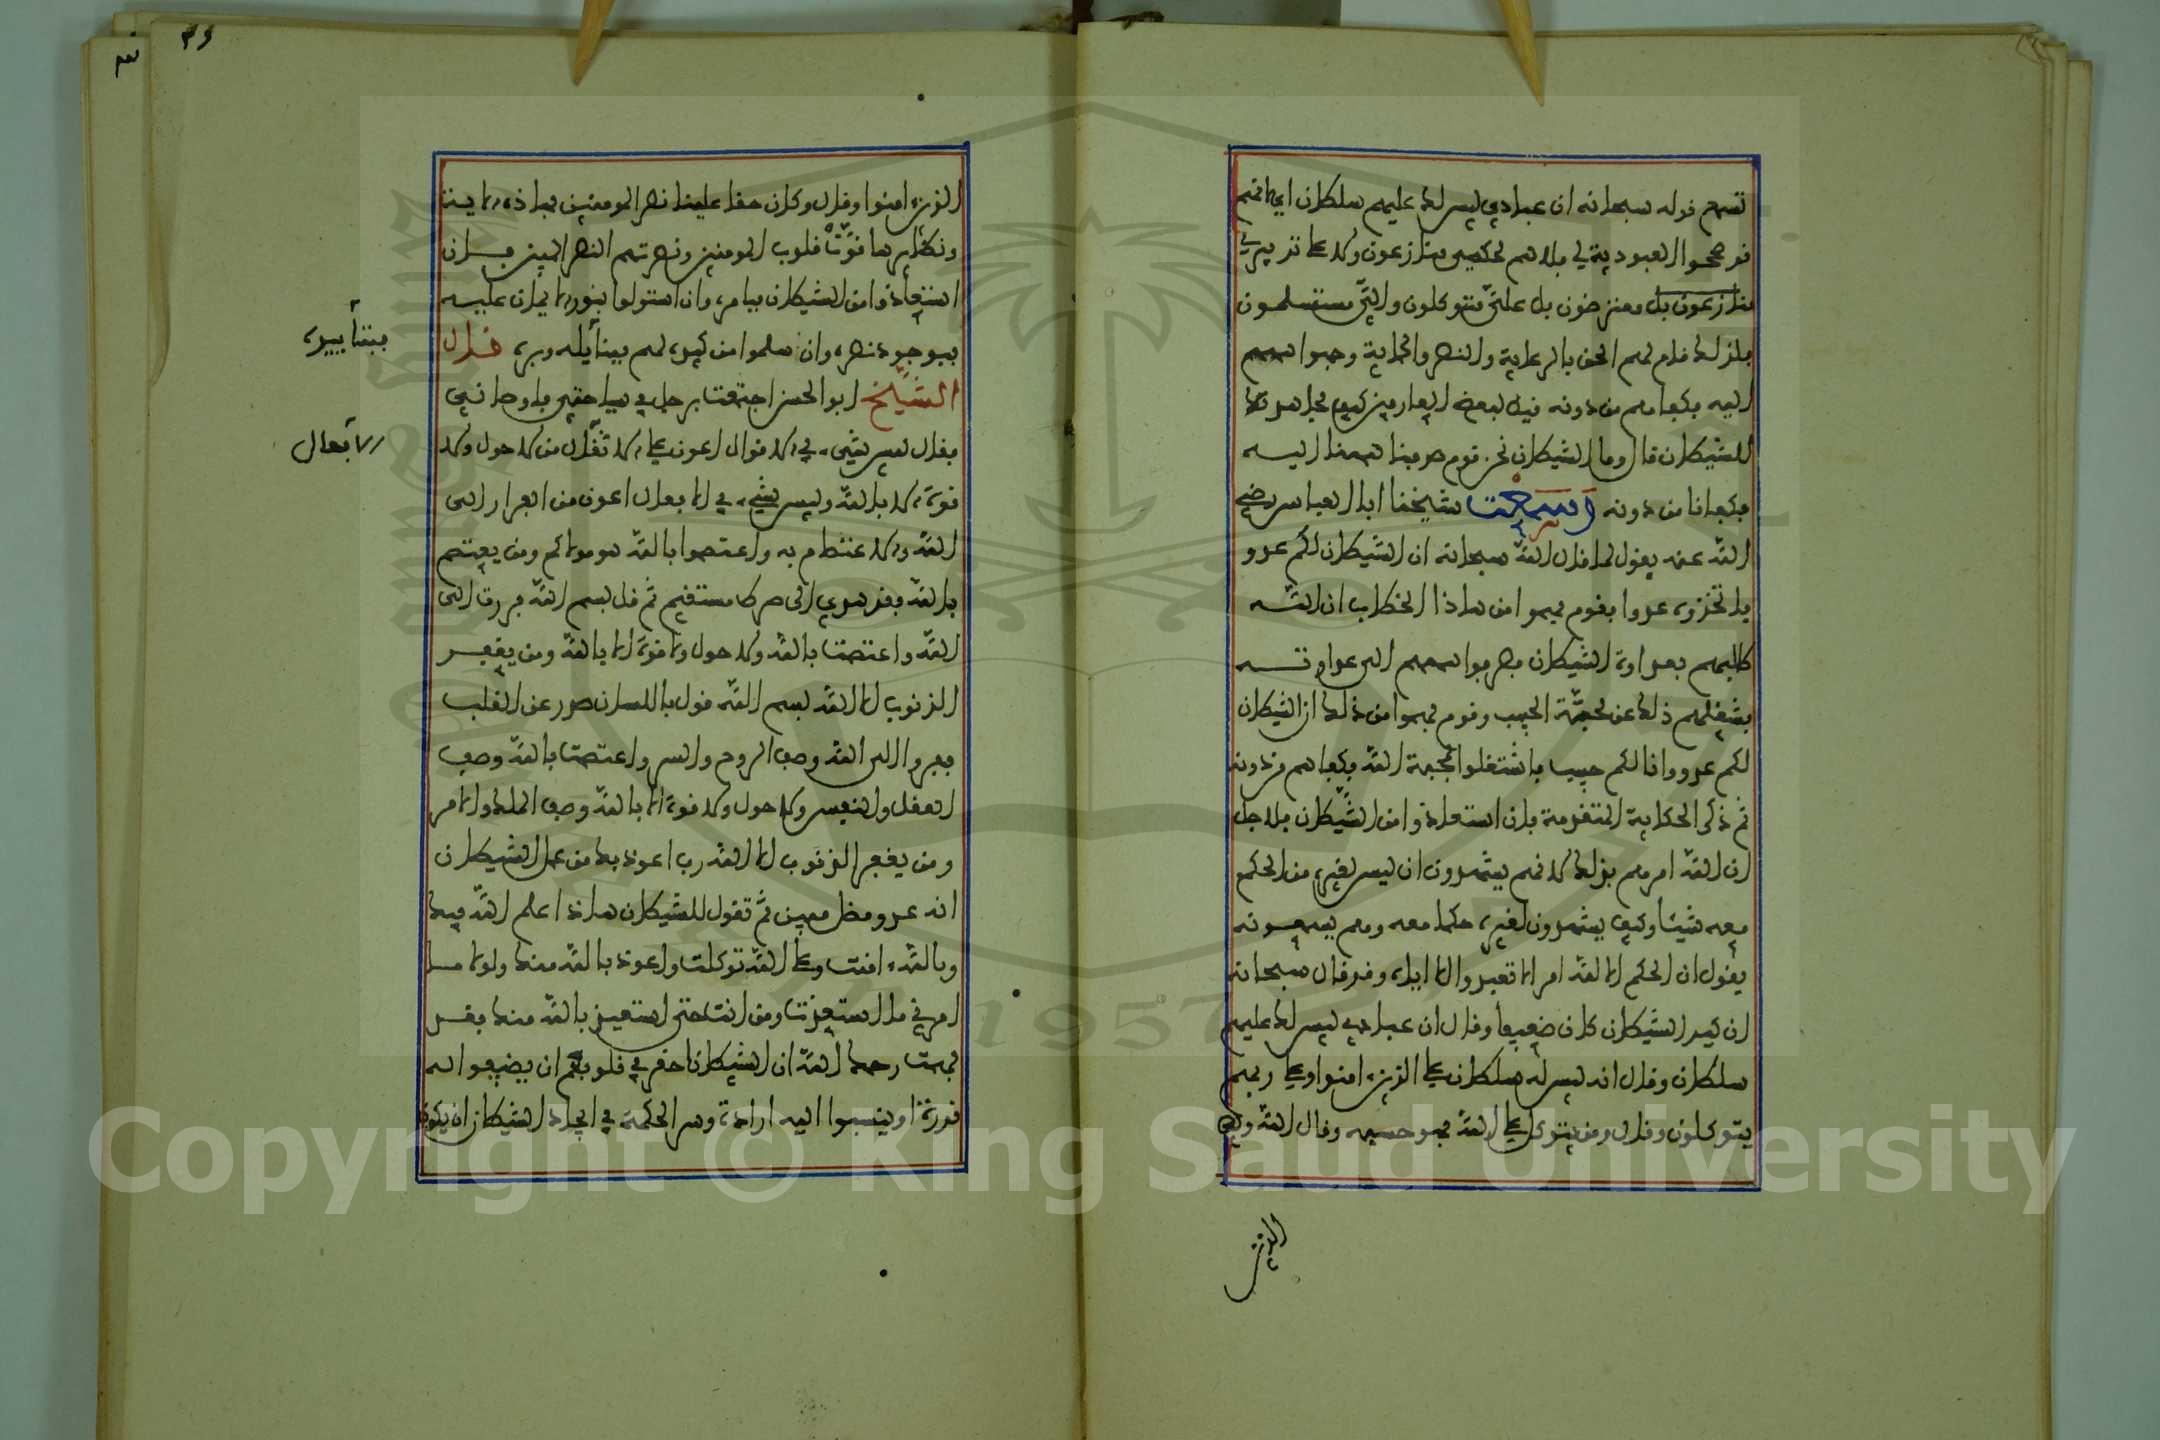 تسمع قوله سبحانه ان عبادي ليس لك عليهم سلطان اي لانهم
قد صححوا العبودية لي فلا هم لحكمي منازعون ولا علي تدبيري
منازعون بل معترضون بل عليّ متوكلون واليّ مستسلمون
فلذلك قام لهم الحق بالرعاية والنصر والحماية وجهوا هممهم
اليه فكفاهم من دونه قيل لبعض العارفين كيف مجاهدتك
للشيطان قال وما الشيطان نحن قوم صرفنا هممنا اليه
فكفانا من دونه وسمعت شيخنا ابا العباس رضي
الله عنه يقول لما قال الله سبحانه ان الشيطان لكم عدو
فاتخذوه عدوا فقوم فهموا من هاذا الخطاب ان الله
طالبهم بعداوة الشيطان فصرفوا هممهم الى عداوته
فشغلهم ذلك عن محبّة الحبيب وقوم فهموا من ذلك ان الشيطان
لكم عدو وانا لكم حبيب فاشتغلوا بمحبة الله فكفاهم من دونه
ثم ذكر الحكاية المتقدمة فان استعاذوا من الشيطان فلاجل
ان الله امرهم بذلك لا نهم يشهدون ان ليس لغيره من الحكم
معه شيئا وكيف يشهدون لغيره حكما معه وهم يسمعونه
يقول ان الحكم الا لله امر الا تعبدوا الا اياه وقد قال سبحانه
ان كيد الشيطان كان ضعيفا وقال ان عبادي ليس لك عليهم
سلطان وقال انه ليس له سلطان على الذين امنوا وعلى ربهم
يتوكلون وقال ومن يتوكل على الله فهو حسبه وقال الله ولي
الذين
٣٩
الذين امنوا وقال وكان حقا علينا نصر المومنين فهاذه الايات
ونظايرها قوّتْ قلوب المومنين ونصرتهم النصر المبين فان
استعاذوا من الشيطان فبامره وان استولوا بنور الايمان عليه
فبوجود نصره وان سلموا من كيده لهم فبتأييده وبره قال
بتأييده
الشيخ ابو الحسن اجتمعت برجل في سياحتي فاوصاني
فقال ليس شيء في الاقوال اعون على الا فعال من لا حول ولا
الافعال
قوة الا بالله وليس شيء في الافعال اعون من الفرار الى
الله والاعتصام به واعتصموا بالله هو مولاكم ومن يعتصم
بالله فقد هدي الى صراط مستقيم ثم قال بسم الله فررت الى
الله واعتصمت بالله ولا حول ولا قوة الا بالله ومن يغفر
الذنوب الا الله بسم الله قول باللسان صدر عن القلب
ففروا الى الله وصف الروح والسر واعتصمت بالله وصف
العقل والنفس ولا حول ولا قوة الا بالله وصف الملك والامر
ومن يغفر الذنوب الا الله رب اعوذ بك من عمل الشيطان
انه عدو مضل مبين ثم تقول للشيطان هاذا علم الله فيك
وبالله امنت وعلى الله توكلت واعوذ بالله منك ولولا ما
امرني ما استعذت ومن انت حتى استعيذ بالله منك فقد
فهمت رحمك الله ان الشيطان احقر في قلوبهم ان يضيفوا له
قدرة او ينسبوا اليه ارادة وسر الحكمة في ايجاد الشيطان ان يكون
Copyright © King Saud University
1957